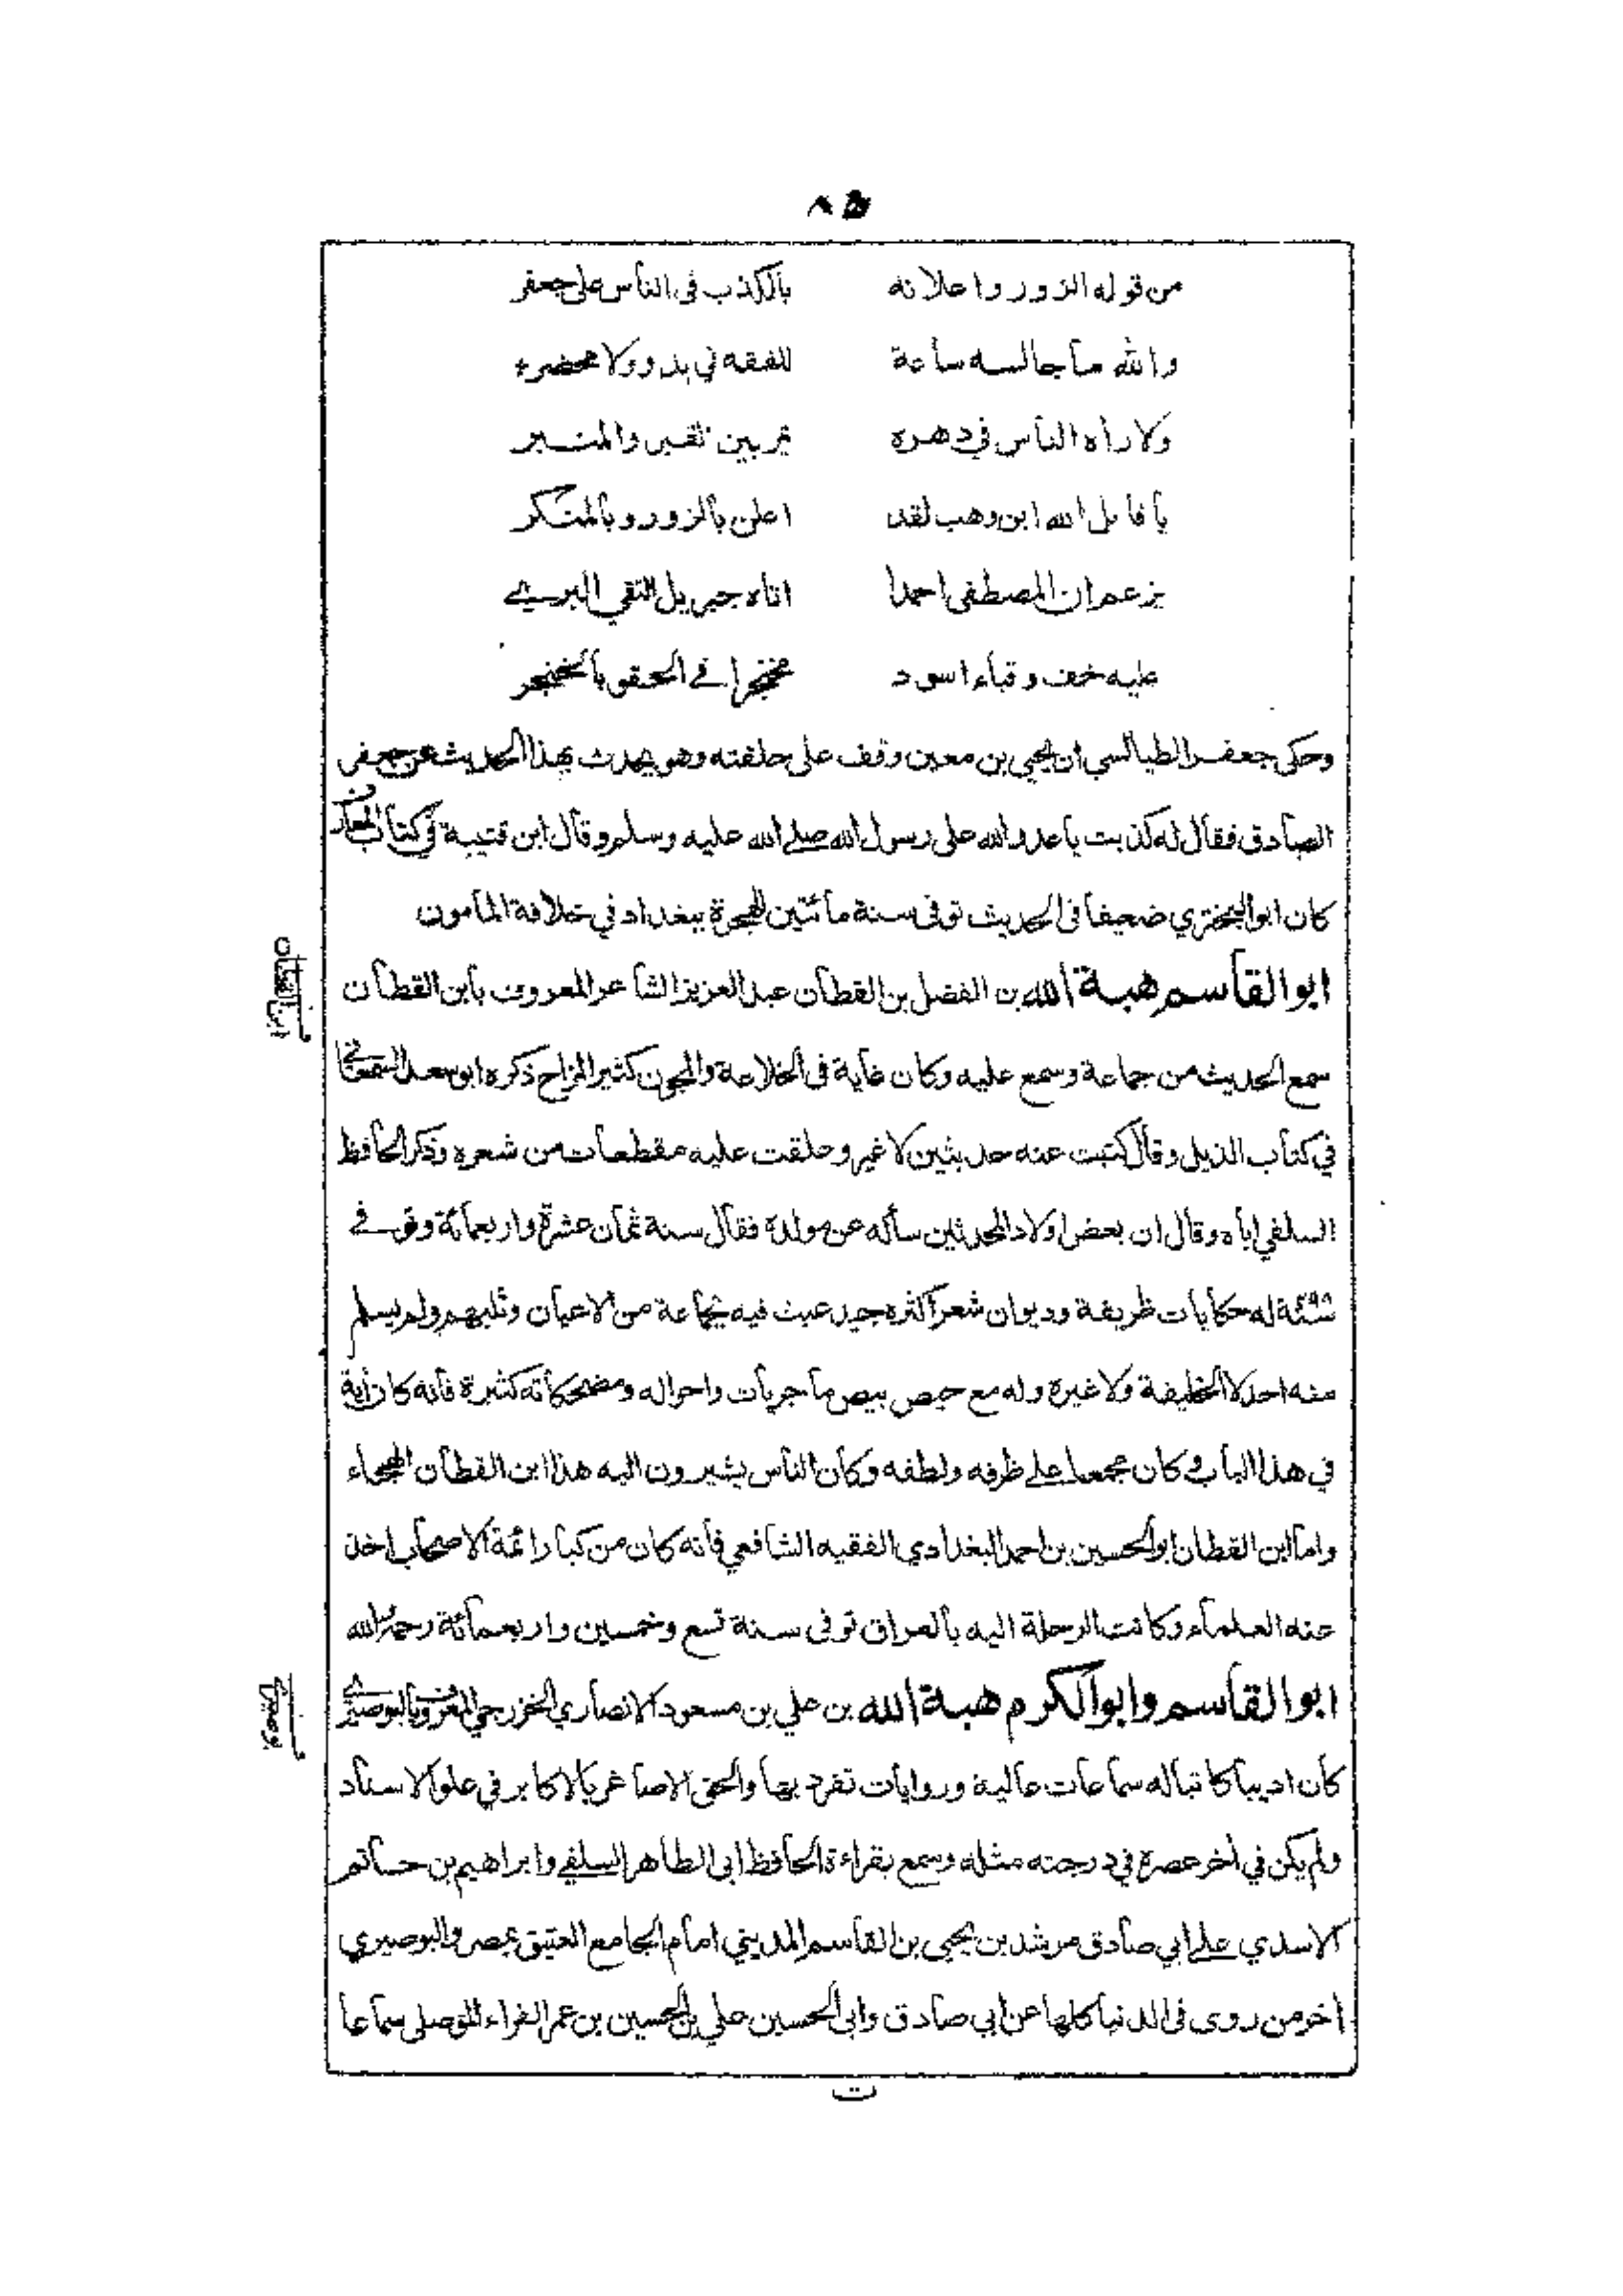 ٨٥
من قوله الزور واعلانه بالكذب فى الناس على جعفر
والله ما جالسه ساعة للفقه في بدو ولا محضر
ولا رأه الناس في دهره يمر بين القبر والمنبر
يا قاتل الله ابن وهب لقد اعلن بالزور وبالمنكر
يزعم ان المصطفى احمدا اتاه جبريل التقي البري
عليه خف وقباء اسود مخنجرا في الحقو بالخنجر
وحكى جعفر الطيالسي ان يحيى بن معين وقف على حلقته وهو يحدث بهذا الحديث عن جعفر
الصادق فقال له كذبت يا عدو الله على رسول الله صلى الله عليه وسلم وقال ابن قتيبة في كتاب المعارف
كان ابو البختري ضعيفا فى الحديث توفى سنة مائتين للهجرة ببغداد في خلافة المأمون
ابو القاسم هبة الله بن الفضل بن القطان عبد العزيز الشاعر المعروف بابن القطان
ابن القطان
سمع الحديث من جماعة وسمع عليه وكان غاية فى الخلاعة والمجون كثير المزاح ذكره ابو سعد السمعاني
في كتاب الذيل وقال كتبت عنه حديثين لا غير وعلقت عليه مقطعات من شعره وذكر الحافظ
السلفي اباه وقال ان بعض اولاد المحدثين سأله عن مولده فقال سنة ثمان عشرة واربعمائة وتوفي
له حكايات ظريفة وديوان شعر اكثره جيد عبث فيه بجماعة من الاعيان وثلبهم ولم يسلم
منه احد لا الخليفة ولا غيره وله مع حيص بيص ماجريات واحواله ومضحكاته كثيرة فانه كان أية
في هذا الباب وكان مجمعا على ظرفه ولطفه وكان الناس يشيرون اليه هذا ابن القطان الهجاء
واما ابن القطان ابو الحسين بن احمد البغدادي الفقيه الشافعي فانه كان من كبار ائمة الاصحاب اخذ
عنه العلماء وكانت الرحلة اليه بالعراق توفى سنة تسع وخمسين واربعمائة رحمه الله
ابو القاسم وابو الكرم هبة الله بن علي بن مسعود الانصاري الخزرجي المعروف بالبوصيري
بوصيري
كان اديبا كاتبا له سماعات عالية وروايات تفرد بها والحق الاصاغر بالاكابر في علو الاسناد
ولم يكن في أخر عصره في درجته مثله وسمع بقراءة الحافظ ابى الطاهر السلفي وابراهيم بن حاتم
الاسدي على ابي صادق مرشد بن يحيى بن القاسم المديني امام الجامع العتيق بمصر والبوصيري
أخر من روى فى الدنيا كلها عن ابي صادق وابى الحسين علي بن الحسين بن عمر الفراء الموصلى سماعا
ت